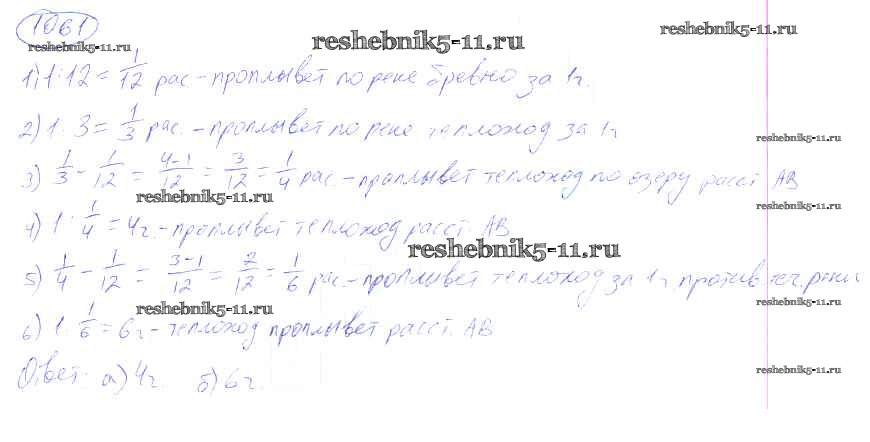 1061
reshebnik5-11.ru
reshebnik5-11.ru
reshebnik5-11.ru
1) 1:12 = 1/12 рас - проплывет по реке бревно за 1 г.
2) 1:3 = 1/3 рас. - проплывет по реке теплоход за 1 г
reshebnik5-11.ru
3) 1/3 - 1/12 = 4-1/12 = 3/12 = 1/4 рас. - проплывет теплоход по озеру расст АВ
reshebnik5-11.ru
reshebnik5-11.ru
4) 1:1/4 = 4 г. - проплывет теплоход расст. АВ
reshebnik5-11.ru
5) 1/4 - 1/12 = 3-1/12 = 2/12 = 1/6 рас. - проплывет теплоход за 1 г. против теч. реки
reshebnik5-11.ru
reshebnik5-11.ru
6) 1:1/6 = 6 г - теплоход проплывет расст. АВ
reshebnik5-11.ru
Ответ: а) 4 г. б) 6 г.